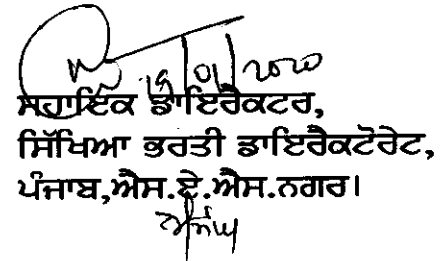 15/01/2020
ਸਹਾਇਕ ਡਾਇਰੈਕਟਰ,
ਸਿੱਖਿਆ ਭਰਤੀ ਡਾਇਰੈਕਟੋਰੇਟ,
ਪੰਜਾਬ,ਐਸ.ਏ.ਐਸ.ਨਗਰ।